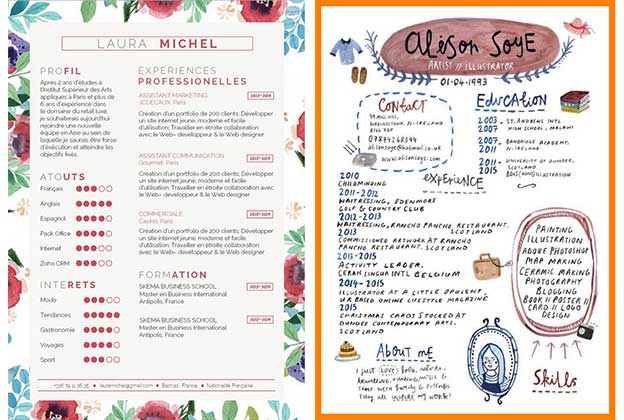 LAURA MICHEL
PROFIL
Après 2 ans d'études à
l'Institut Supérieur des Arts
appliqués à Paris et plus de
6 ans d'expérience dans
le domaine du retail luxe,
je souhaiterais aujourd'hui
rejoindre une nouvelle
équipe en Asie au sein de
laquelle je saurais être force
d'exécution et atteindre les
objectifs fixés.
ATOUTS
Français
Anglais
Espagnol
Pack Office
Internet
Zoho CRM
INTERETS
Mode
Tendances
Gastronomie
Voyages
Sport
EXPERIENCES
PROFESSIONELLES
ASSISTANT MARKETING
JCDECAUX, Paris
Création d'un portfolio de 200 clients; Développer
un site internet jeune, moderne et facile
d'utilisation; Travailler en étroite collaboration
avec le Web- developpeur & le Web designer
ASSISTANT COMMUNICATION
Gourmet, Paris
Création d'un portfolio de 200 clients; Développer
un site internet jeune, moderne et facile
d'utilisation; Travailler en étroite collaboration avec
le Web- developpeur & le Web designer
COMMERCIALE
Casino, Paris
Création d'un portfolio de 200 clients; Développer
un site internet jeune, moderne et facile
d'utilisation; Travailler en étroite collaboration avec
le Web- developpeur & le Web designer
FORMATION
SKEMA BUSINESS SCHOOL
Master en Business International
Antipolis, France
SKEMA BUSINESS SCHOOL
Master en Business International
Antipolis, France
+336 74 11 36 35 • lauramichel@gmail.com • Nationalité Française
alison SoyE
ARTIST // ILLUSTRATOR
01·04·1993
CONTACT
WARRINGSTOWN, N·IRELAND
07874268394
alisonsoye@hotmail.co.uk
www.alisonsoye.com
EdUCATION
2003 - 2007 ST. ANDREWS INTL
HIGH SCHOOL, MALAWI
2007 - 2011 BANBRIDGE ACADEMY,
N·IRELAND
2011 - 2015 UNIVERSITY OF DUNDEE,
SCOTLAND
EXPERIENCE
2010
CHILDMINDING
2011-2012
WAITRESSING, EDENMORE
GOLF & COUNTRY CLUB
2012-2013
WAITRESSING, RANCHO PANCHO RESTAURANT,
SCOTLAND
2013
COMMISSIONED ARTWORK AT RANCHO
PANCHO RESTAURANT, SCOTLAND
2013-2015
ACTIVITY LEADER,
CERAN LINGUA INTL BELGIUM
2014-2015
ILLUSTRATOR AT A LITTLE OPULENT,
UK BASED ONLINE LIFESTYLE MAGAZINE
2015
CHRISTMAS CARDS STOCKED AT
DUNDEE CONTEMPORARY ARTS,
SCOTLAND
PAINTING
ILLUSTRATION
ADOBE PHOTOSHOP
MAP MAKING
CERAMIC MAKING
PHOTOGRAPHY
BLOGGING
BOOK // POSTER //
CARD // LOGO
DESIGN
Skills
ABOUT ME
I just LOVE